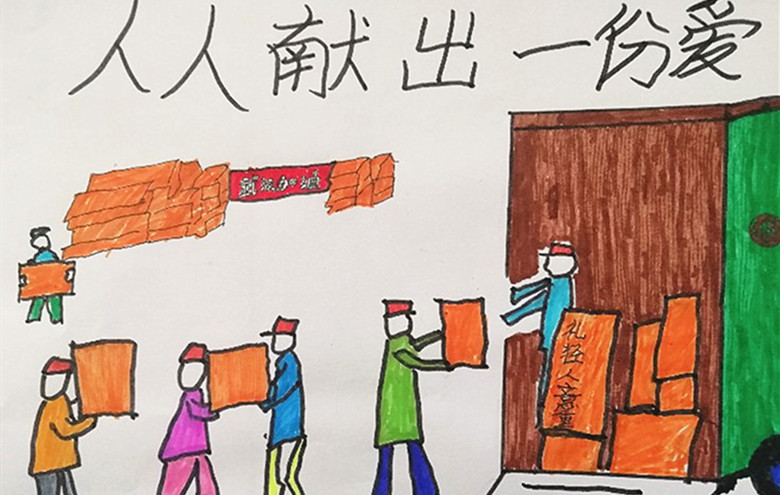 人人献出一份爱
武汉加油
礼轻人意重